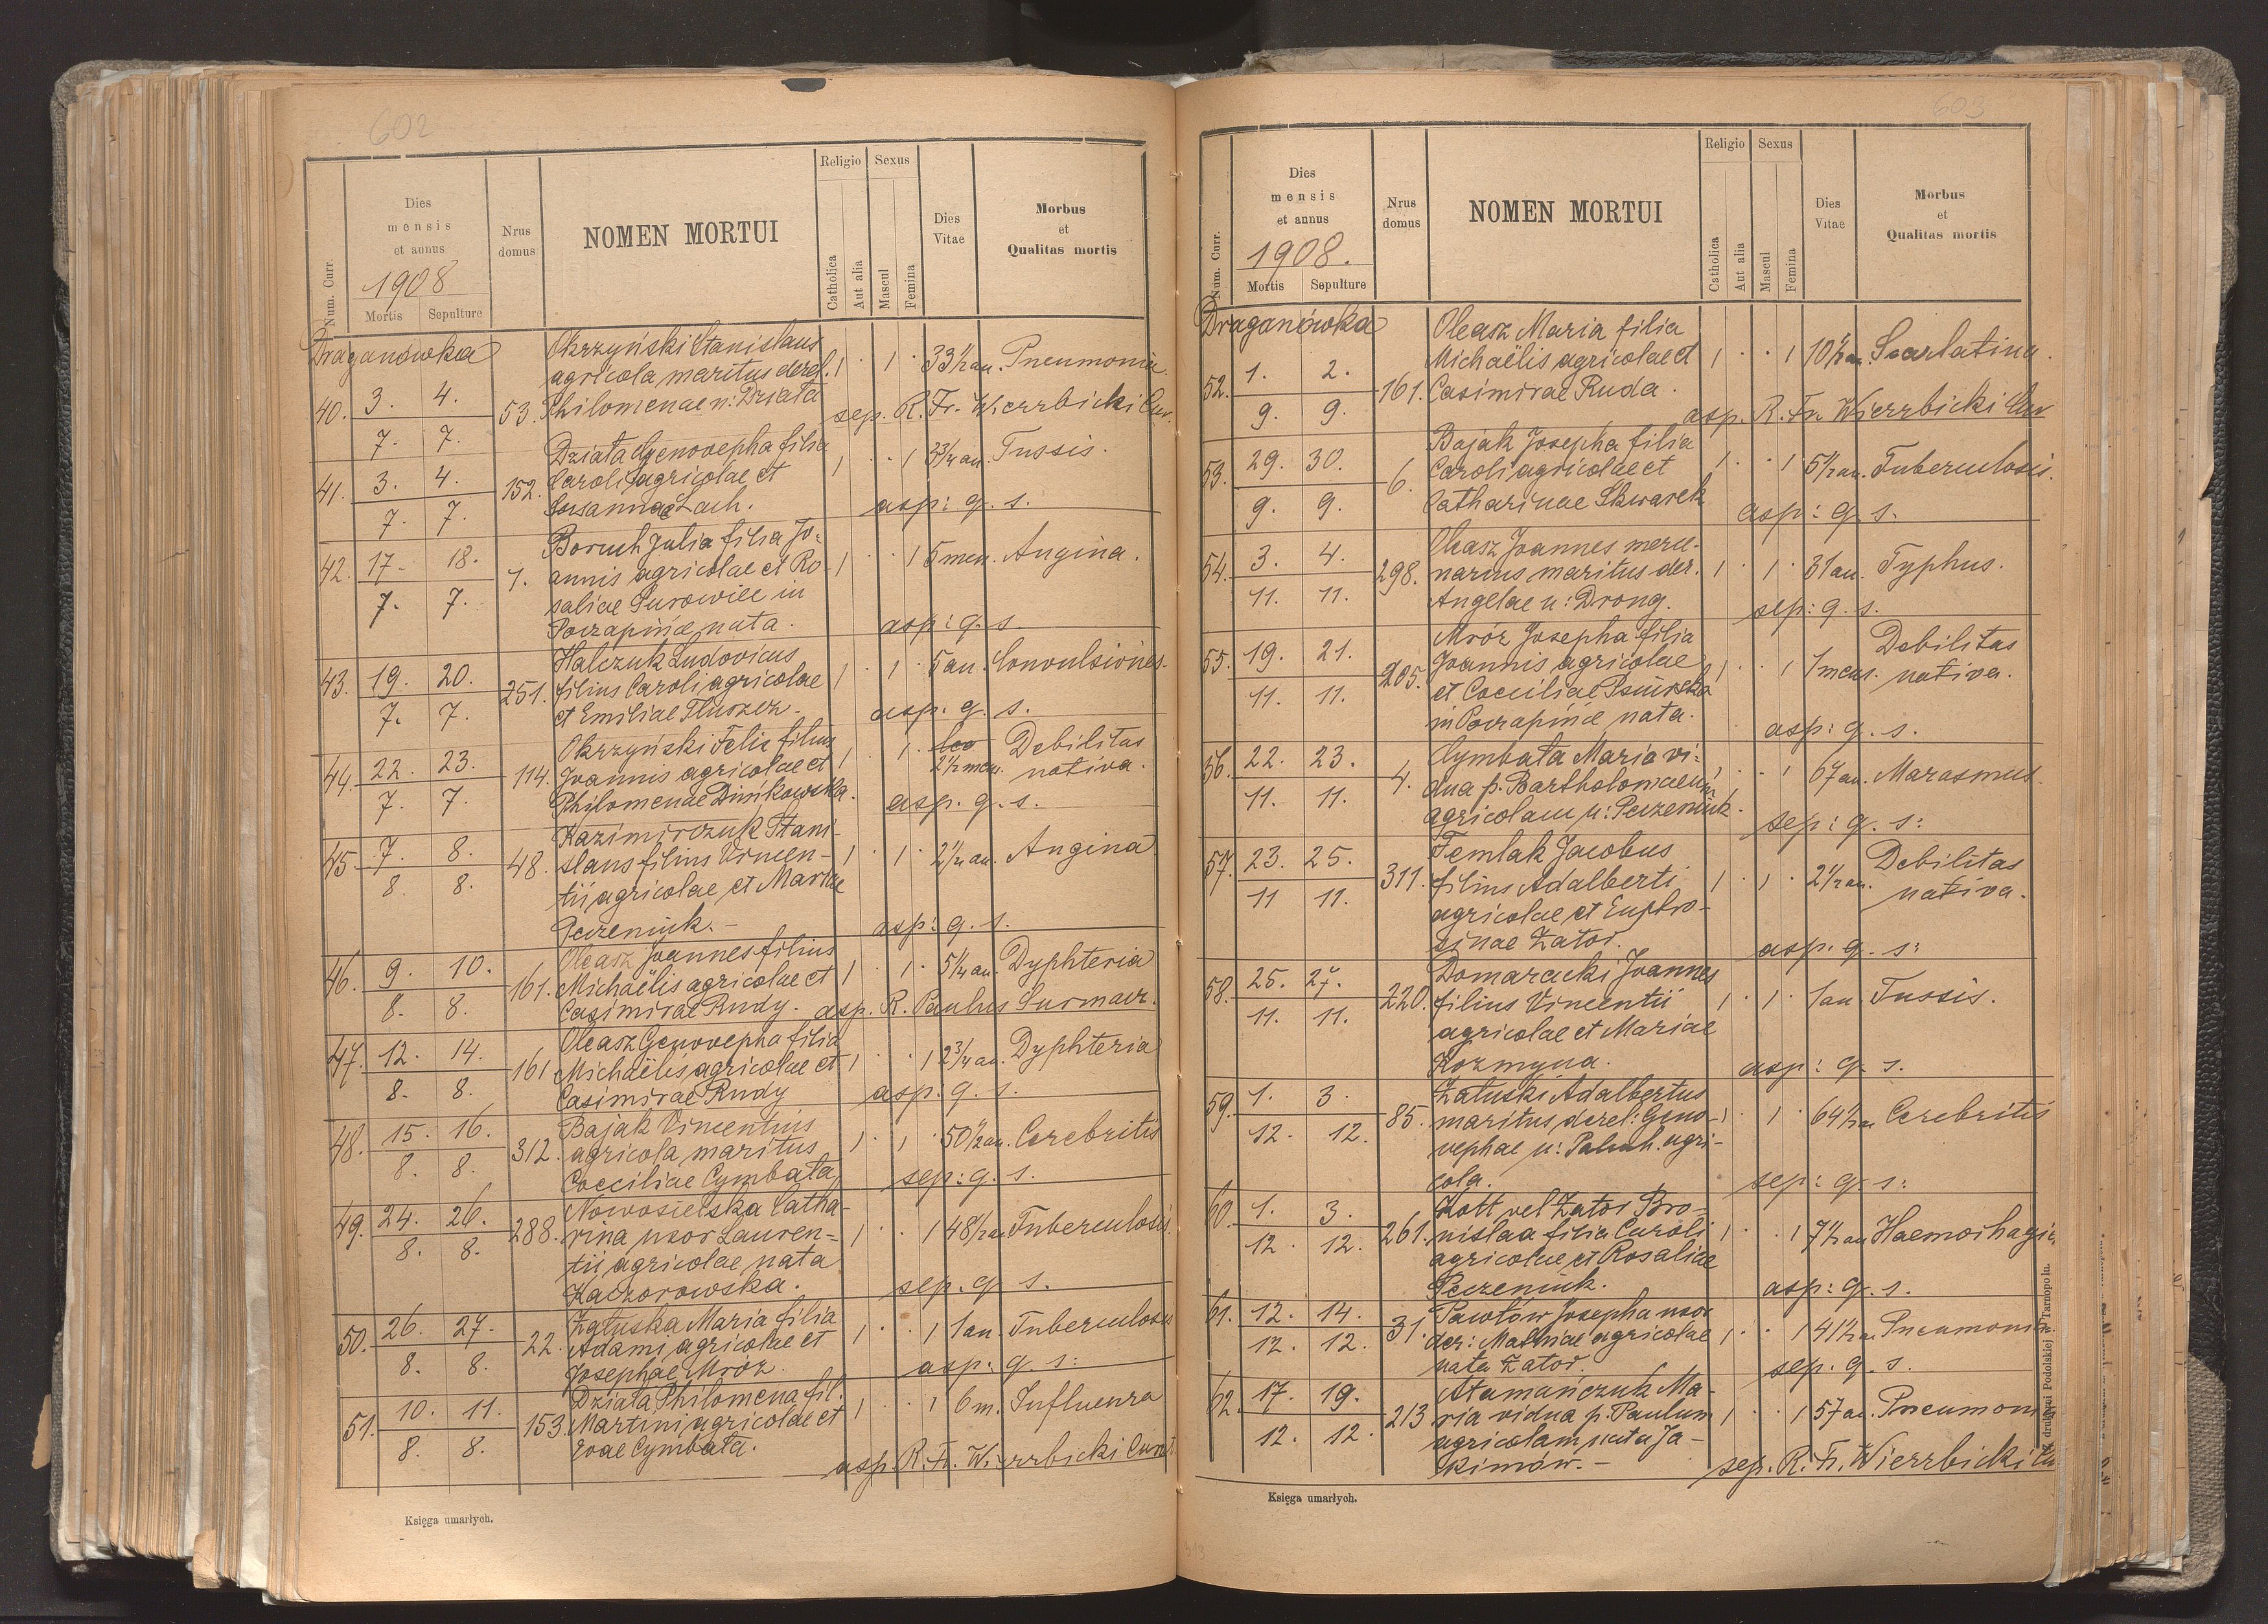 602
Num. Curr.
Dies mensis et annus
1908
Mortis Sepulture
Nrus domus
NOMEN MORTUI
Religio
Catholica
Aut alia
Sexus
Mascul
Femina
Dies Vitae
Morbus et Qualitas mortis
Draganówka
Okrzyński Stanislaus
agricola maritus derel. 1 · 1 · 33½ an. Pneumonia.
40. 3. 4. 53. Philomenae n: Dziata sep. R. Fr. Wierzbicki Cur.
7. 7.
Dziata Genovepha filia
41. 3. 4. 152. Caroli agricolae et 1 · · 1 3¾ an. Tussis.
7. 7. Susannae Lach. asp: q. s.
Boruch Julia filia Jo-
42. 17. 18. 7. annis agricolae et Ro- 1 · · 1 5 men. Angina.
7. 7. saliae Surowiec in
Poczapińce nata. asp: q. s.
Halczuk Ludovicus
43. 19. 20. 251. filius Caroli agricolae 1 · 1 · 5 an. Convulsiones.
7. 7. et Emiliae Tluszcz. asp. q. s.
Okrzyński Felix filius
44. 22. 23. 114. Joannis agricolae et 1 · 1 · 2½ men. Debilitas nativa.
7. 7. Philomenae Dinikowska. asp. q. s.
Kazimirczuk Stani-
45. 7. 8. 48. slaus filius Vincen- 1 · 1 · 2½ an. Angina
8. 8. tii agricolae et Mariae
Peczeniuk. asp: q. s.
Oleasz Joannes filius
46. 9. 10. 161. Michaëlis agricolae et 1 · 1 · 5¼ an. Dyphteria
8. 8. Casimirae Rudy. asp. R. Paulus Surmacz.
Oleasz Genovepha filia
47. 12. 14. 161 Michaëlis agricolae et 1 · · 1 2¾ an. Dyphteria
8. 8. Casimirae Rudy asp: q. s.
Bajak Vincentius
48. 15. 16. 312. agricola maritus 1 · 1 · 50½ an. Cerebritis
8. 8. Coeciliae Cymbata sep: q. s.
Nowosielska Catha-
49. 24. 26. 288. rina uxor Lauren- 1 · · 1 48½ an Tuberculosis.
8. 8. tii agricolae nata
Kaczorowska. sep. q. s.
Załuska Maria filia
50. 26. 27. 22. Adami agricolae et 1 · · 1 1 an. Tuberculosis
8. 8. Josephae Mróz. asp: q. s:
Dziata Philomena fil.
51. 10. 11. 153. Martini agricolae et 1 · · 1 6 m. Influenza
8. 8. Evae Cymbata.
asp. R. Fr. Wierzbicki Curat.
Księga umarłych.
603
Num. Curr.
Dies mensis et annus
1908.
Mortis Sepulture
Nrus domus
NOMEN MORTUI
Religio
Catholica
Aut alia
Sexus
Mascul
Femina
Dies Vitae
Morbus et Qualitas mortis
Draganówka
Oleasz Maria filia
Michaëlis agricolae et 1 · · 1 10½ an. Scarlatina.
52. 1. 2. 161. Casimirae Ruda.
9. 9. asp. R. Fr. Wierzbicki Cur
Bajak Josepha filia
53. 29. 30. 6. Caroli agricolae et 1 · · 1 5½ an. Tuberculosis.
9. 9. Catharinae Skwarek asp: q. s.
Oleasz Joannes merce-
54. 3. 4. 298. narius maritus der. 1 · 1 · 31 an. Typhus.
11. 11. Angelae n: Drong. sep: q. s.
Mróz Josepha filia
55. 19. 21. 205. Joannis agricolae 1 · · 1 1 mens. Debilitas nativa.
11. 11. et Coeciliae Psiurska
in Poczapińce nata. asp: q. s.
Cymbata Maria vi-
56. 22. 23. 4. dua p. Bartholomaeum 1 · · 1 67 an. Marasmus.
11. 11. agricolam n: Peczeniuk. sep: q. s:
Temlak Jacobus
57. 23. 25. 311. filius Adalberti 1 · 1 · 2½ an. Debilitas nativa.
11 11. agricolae et Euphro-
sinae Zator. asp. q. s:
Domaracki Joannes
58. 25. 27. 220. filius Vincentii 1 · 1 · 1 an Tussis.
11. 11. agricolae et Mariae
Kozmyna. asp: q. s.
Załuski Adalbertus
59. 1. 3. 85. maritus derel: Geno- 1 · 1 · 64½ an Cerebritis
12. 12. vephae n: Paluch. agri-
cola. sep: q. s:
Kott vel Zator Bro-
60. 1. 3. 261. nislaa filia Caroli 1 · · 1 7½ an Haemorhagia
12. 12. agricolae et Rosaliae
Peczeniuk. asp: q. s.
61. 12. 14. 31. Pawłów Josepha uxor
12. 12. der: Mathiae agricolae 1 · · 1 41½ an. Pneumonia
nata Zator. sep. q. s.
Atamańczuk Ma-
62. 17. 19. 213 ria vidua p. Paulum 1 · · 1 57 an. Pneumonia
12. 12. agricolam nata Ja-
kimów. sep. R. Fr. Wierzbicki Cu
Księga umarłych.
drukarni Podolskiej w Tarnopolu.